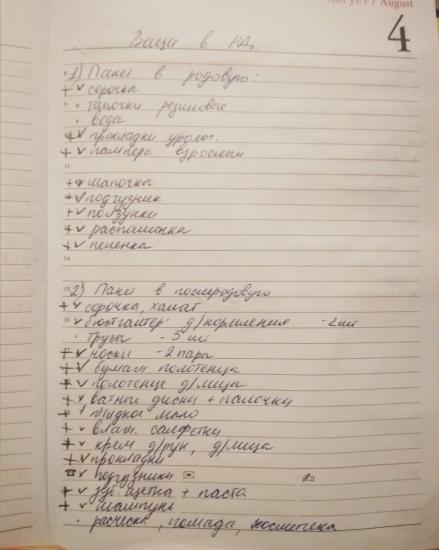 Август / August
4
Вещи в РД
1) Пакет в родовую:
+ ✓ сорочка
• тапочки резиновые
• вода
+ ✓ прокладки уролог.
+ ✓ памперс взрослый
12
+ шапочка
+ ✓ подгузник
+ ✓ ползунки
+ ✓ распашонка
+ ✓ пеленка
14
15 2) Пакет в послеродовую
+ ✓ сорочка, халат
16 ✓ бюстгалтер д/кормления - 2шт
• трусы - 5 шт
17 + ✓ носки - 2 пары
+ ✓ бумаж полотенца
+ ✓ полотенце д/лица
+ ✓ ватные диски + палочки
+ жидкое мыло
+ ✓ влаж. салфетки
+ ✓ крем д/рук, д/лица
+ ✓ прокладки
☎ ✓ подгузники ✉ ✍
+ ✓ зуб. щетка + паста
+ ✓ шампунь
• расческа, помада, косметика